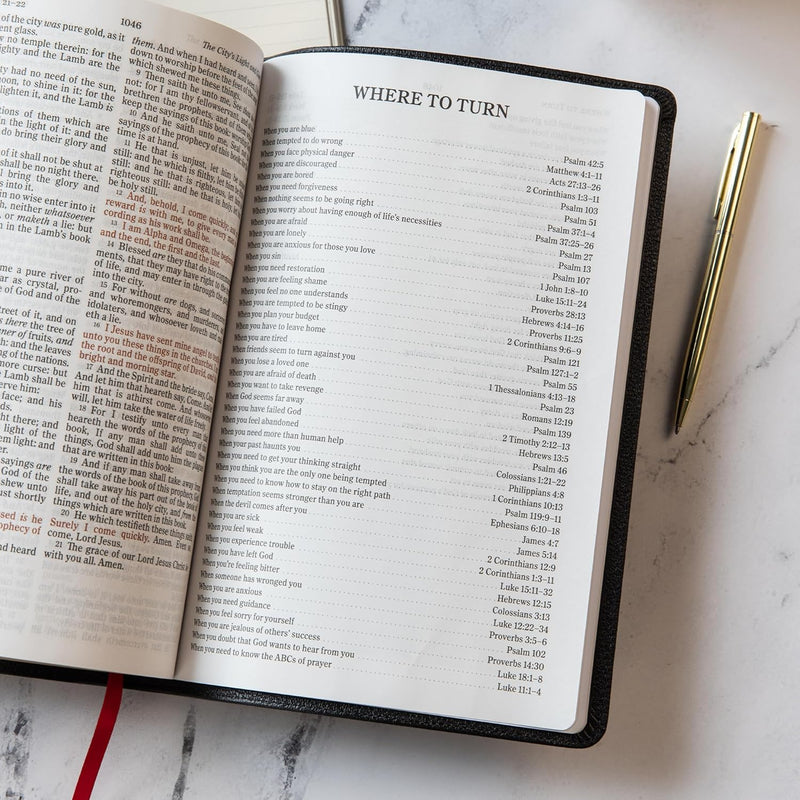 21–22
of the city was pure gold, as it
ent glass.
no temple therein: for the
ighty and the Lamb are the
ty had no need of the sun,
oon, to shine in it: for the
lighten it, and the Lamb is
tions of them which are
in the light of it: and the
do bring their glory and
of it shall not be shut at
shall be no night there.
l bring the glory and
s into it.
in no wise enter into it
h, neither whatsoever
, or maketh a lie: but
n in the Lamb's book
me a pure river of
ar as crystal, pro-
e of God and of the
treet of it, and on
s there the tree of
nner of fruits, and
h: and the leaves
g of the nations.
more curse: but
e Lamb shall be
erve him:
face; and his
ds.
ht there; and
light of the
em light: and
er.
sayings are
God of the
shew unto
ust shortly
ssed is he
ophecy of
ad heard
1046
The City's Light
them. And when I had heard and
down to worship before the feet of
which shewed me these things.
9 Then saith he unto me, See
not: for I am thy fellowservant, and
brethren the prophets, and of them
keep the sayings of this book: worship
10 And he saith unto me, Seal
sayings of the prophecy of this book
time is at hand.
11 He that is unjust, let him be
still: and he which is filthy, let him be
still: and he that is righteous, let him
righteous still: and he that is holy, let
be holy still.
12 And, behold, I come quickly; and
reward is with me, to give every man
cording as his work shall be.
13 I am Alpha and Omega, the beginning
and the end, the first and the last.
14 Blessed are they that do his com
ments, that they may have right to the
of life, and may enter in through the
into the city.
15 For without are dogs, and
and whoremongers, and murderers,
idolaters, and whosoever loveth and
eth a lie.
16 I Jesus have sent mine angel to
unto you these things in the churches.
the root and the offspring of David,
bright and morning star.
17 And the Spirit and the bride say, Come.
And let him that heareth say, Come. And
him that is athirst come. And whosoever
will, let him take the water of life freely.
18 For I testify unto every man
heareth the words of the prophecy of
book, If any man shall add unto these
things, God shall add unto him the
that are written in this book:
19 And if any man shall take away from
the words of the book of this prophecy,
shall take away his part out of the book of
life, and out of the holy city, and from the
things which are written in this book.
20 He which testifieth these things saith,
Surely I come quickly. Amen. Even so,
come, Lord Jesus.
21 The grace of our Lord Jesus Christ be
with you all. Amen.
WHERE TO TURN
When you are blue Psalm 42:5
When tempted to do wrong Matthew 4:1–11
When you face physical danger Acts 27:13–26
When you are discouraged 2 Corinthians 1:3–11
When you are bored Psalm 103
When you need forgiveness Psalm 51
When nothing seems to be going right Psalm 37:1–4
When you worry about having enough of life's necessities Psalm 37:25–26
When you are afraid Psalm 27
When you are lonely Psalm 13
When you are anxious for those you love Psalm 107
When you sin 1 John 1:8–10
When you need restoration Luke 15:11–24
When you are feeling shame Proverbs 28:13
When you feel no one understands Hebrews 4:14–16
When you are tempted to be stingy Proverbs 11:25
When you plan your budget 2 Corinthians 9:6–9
When you have to leave home Psalm 121
When you are tired Psalm 127:1–2
When friends seem to turn against you Psalm 55
When you lose a loved one 1 Thessalonians 4:13–18
When you are afraid of death Psalm 23
When you want to take revenge Romans 12:19
When God seems far away Psalm 139
When you have failed God 2 Timothy 2:12–13
When you feel abandoned Hebrews 13:5
When you need more than human help Psalm 46
When your past haunts you Colossians 1:21–22
When you need to get your thinking straight Philippians 4:8
When you think you are the only one being tempted 1 Corinthians 10:13
When you need to know how to stay on the right path Psalm 119:9–11
When temptation seems stronger than you are Ephesians 6:10–18
When the devil comes after you James 4:7
When you are sick James 5:14
When you feel weak 2 Corinthians 12:9
When you experience trouble 2 Corinthians 1:3–11
When you have left God Luke 15:11–32
When you're feeling bitter Hebrews 12:15
When someone has wronged you Colossians 3:13
When you are anxious Luke 12:22–34
When you need guidance Proverbs 3:5–6
When you feel sorry for yourself Psalm 102
When you are jealous of others' success Proverbs 14:30
When you doubt that God wants to hear from you Luke 18:1–8
When you need to know the ABCs of prayer Luke 11:1–4